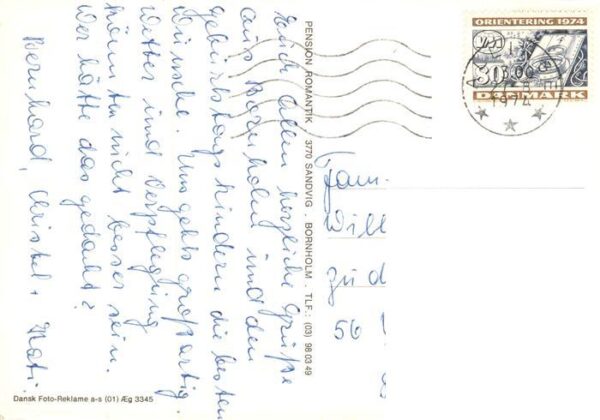 Euch allen herzliche Grüße
aus Bornholm und den
geburtstags kindern die besten
Wünsche. Uns gehts großartig.
Wetter und Verpflegung
könnten nicht besser sein.
Wer hätte das gedacht?
Bernhard, Christel + Kati.
PENSION ROMANTIK . 3770 SANDVIG . BORNHOLM . TLF.: (03) 98 03 49
ORIENTERING 1974
DANMARK
1974
Fam.
Will
Zu d
56
Dansk Foto-Reklame a-s (01) Æg 3345